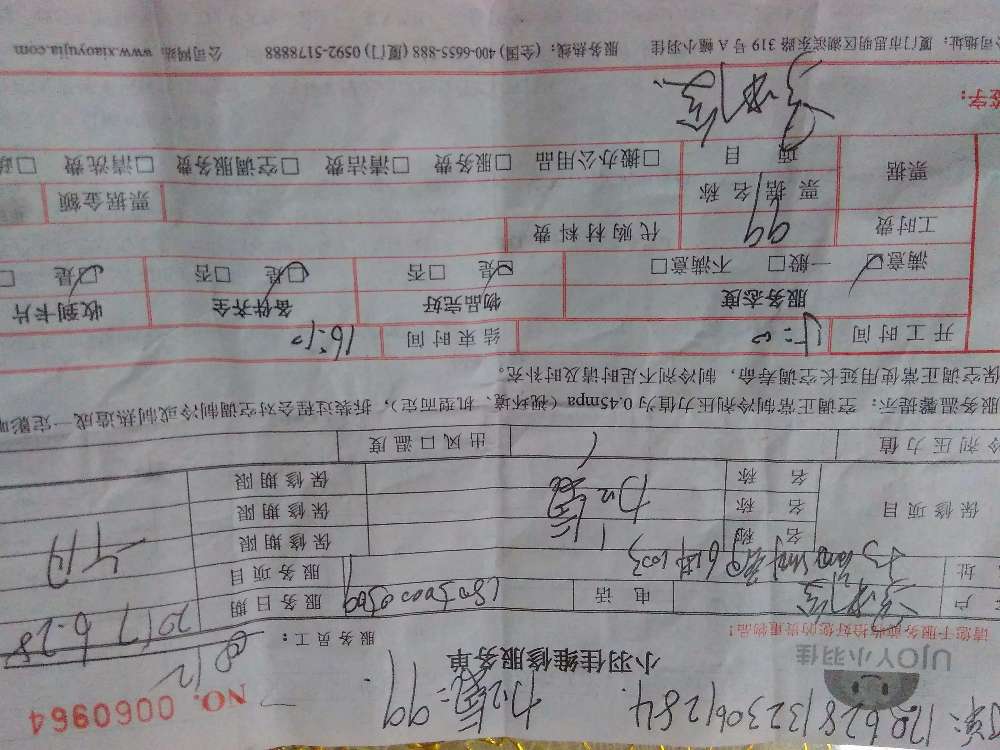 170628132306 1284
加氟:99
UJOY小羽佳
小羽佳维修服务单
NO. 0060964
请您于服务前收拾好您的贵重物品!
服务员工:
012
户
电 话
服务日期
2017 6.28
址
服务项目
保修项目
名 称
保修期限
名 称
加氟
保修期限
名 称
保修期限
冷剂压力值
出风口温度
服务温馨提示:空调正常制冷剂压力值为0.45mpa(视环境、机型而定),拆装过程会对空调制冷或制热造成一定影
保空调正常使用延长空调寿命,制冷剂不足时请及时补充。
开工时间
结束时间
服务态度
物品完好
备件齐全
收到卡片
满意□ 一般□ 不满意□
□是 □否
□是 □否
□是 □
工时费
99
代购材料费
票据
票据名称
票据金额
项 目
□搬办公用品 □服务费 □清洁费 □空调服务费 □清洗费 □
签字:
公司地址:厦门市思明区湖滨东路319号A幢小羽佳 服务热线:(全国)400-6655-888(厦门)0592-5178888 公司网站:www.xiaoyujia.com